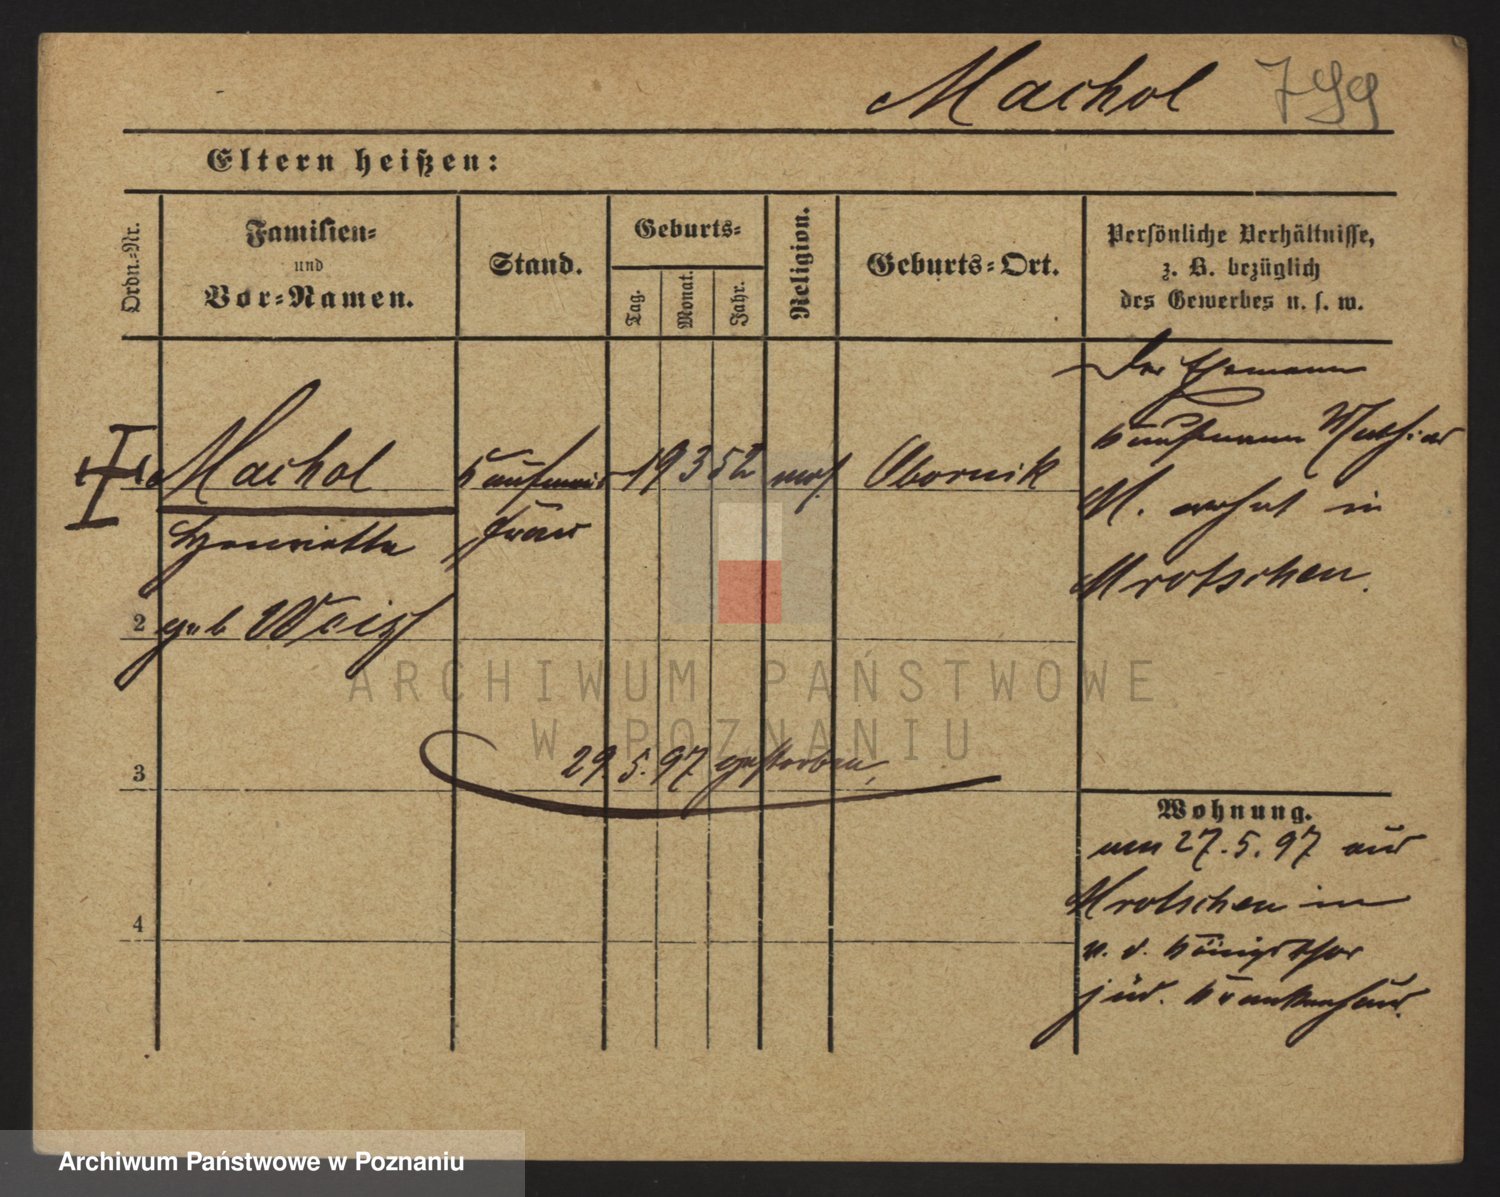 Machol 799
Eltern heißen:
Ordn.-Nr.
Familien-
und
Vor-Namen.
Stand.
Geburts-
Tag.
Monat.
Jahr.
Religion.
Geburts-Ort.
Persönliche Verhältnisse,
z. B. bezüglich
des Gewerbes u. s. w.
Der Ehemann
Kaufmann
M. wohnt in
Mrotschen.
1 Machol Kaufmanns 19 3 52 mos. Obornik
Henriette frau
2 geb Weiß
3 29. 5. 97 gestorben,
4
Wohnung.
am 27. 5. 97 aus
Mrotschen in
v. d. Königsthor
jüd. Krankenhaus.
ARCHIWUM PAŃSTWOWE
W POZNANIU
Archiwum Państwowe w Poznaniu